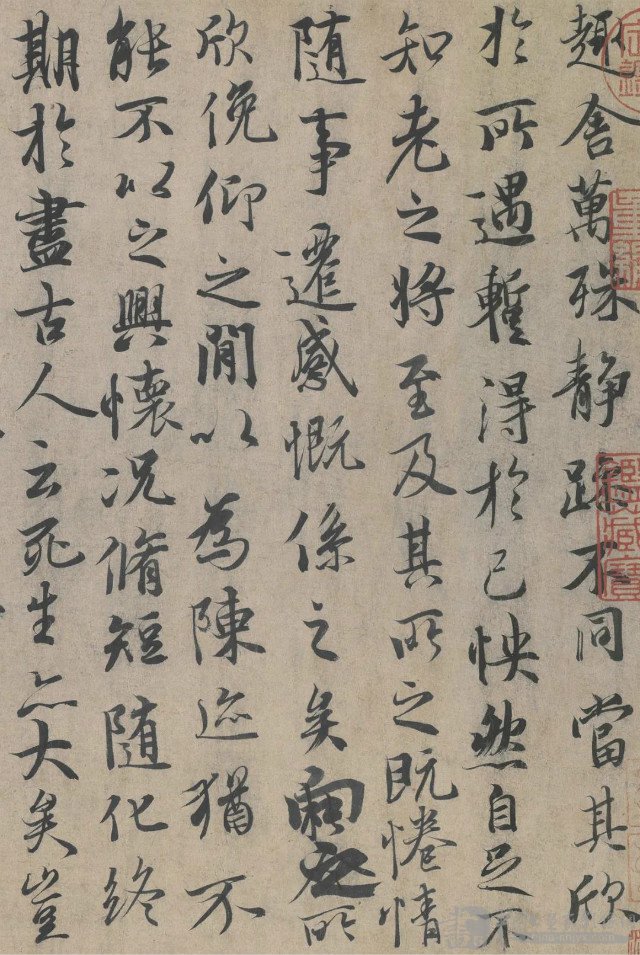 趣舍萬殊静躁不同當其欣
於所遇暫得於己怏然自足不
知老之將至及其所之既惓情
随事遷感慨係之矣向之所
欣俛仰之間以為陳迹猶不
能不以之興懷况脩短随化終
期於盡古人云死生亦大矣豈